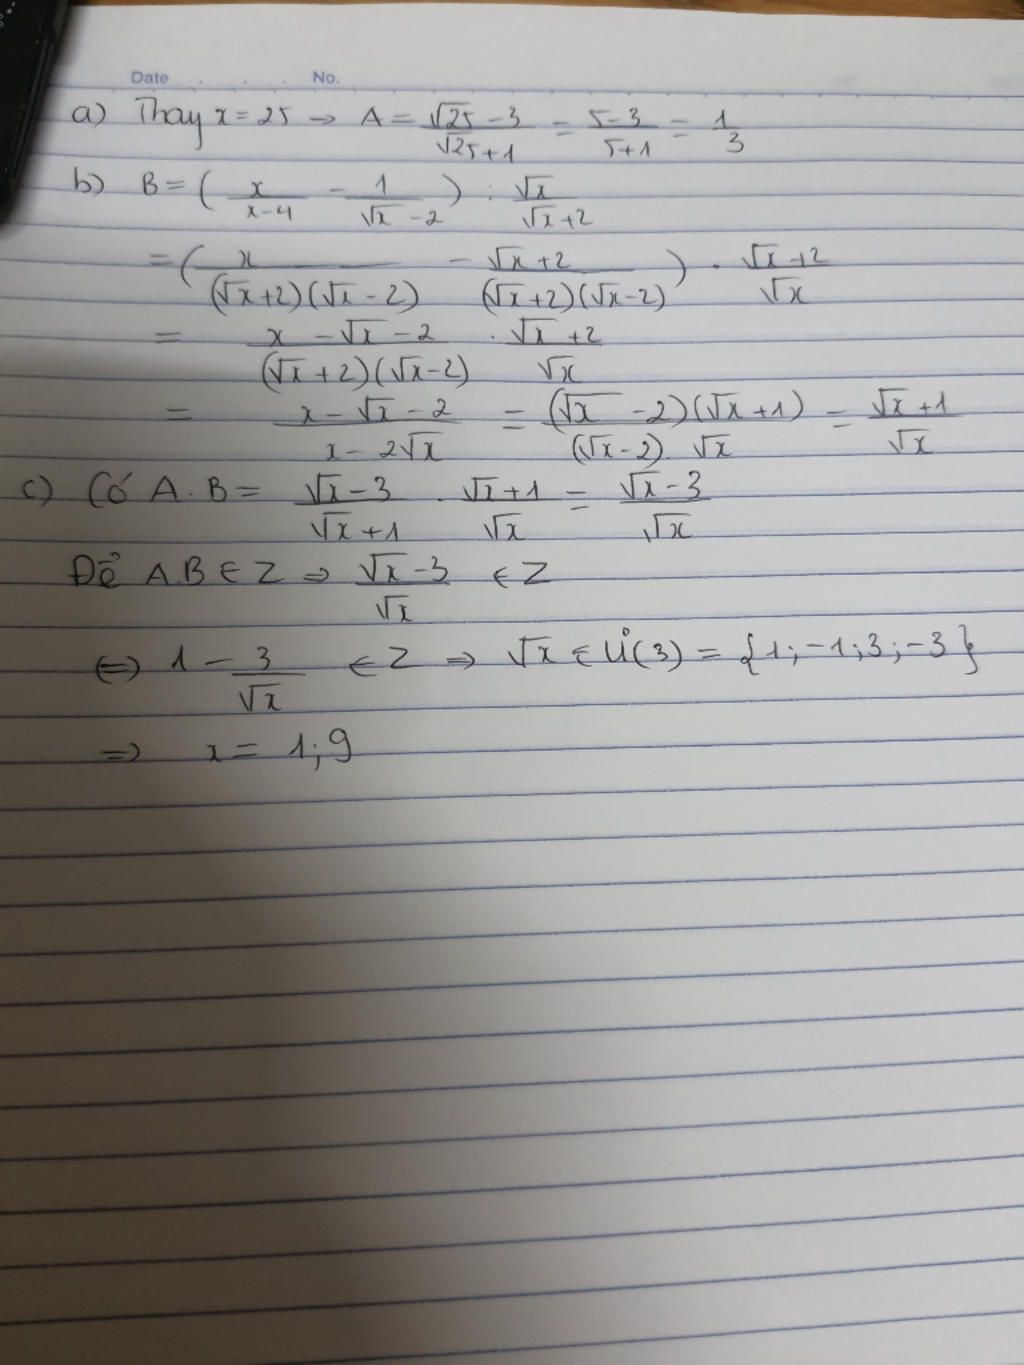 Date . . . No.
a) Thay x = 25 → A = (√25 - 3)/(√25 + 1) = (5 - 3)/(5 + 1) = 1/3
b) B = ( x/(x - 4) - 1/(√x - 2) ) : √x/(√x + 2)
= ( x/((√x + 2)(√x - 2)) - (√x + 2)/((√x + 2)(√x - 2)) ) . (√x + 2)/√x
= (x - √x - 2)/((√x + 2)(√x - 2)) . (√x + 2)/√x
= (x - √x - 2)/(x - 2√x) = ((√x - 2)(√x + 1))/((√x - 2) √x) = (√x + 1)/√x
c) Có A.B = (√x - 3)/(√x + 1) . (√x + 1)/√x = (√x - 3)/√x
Để A.B ∈ Z ⇒ (√x - 3)/√x ∈ Z
⇔ 1 - 3/√x ∈ Z ⇒ √x ∈ Ư(3) = {1; -1; 3; -3}
⇒ x = 1; 9